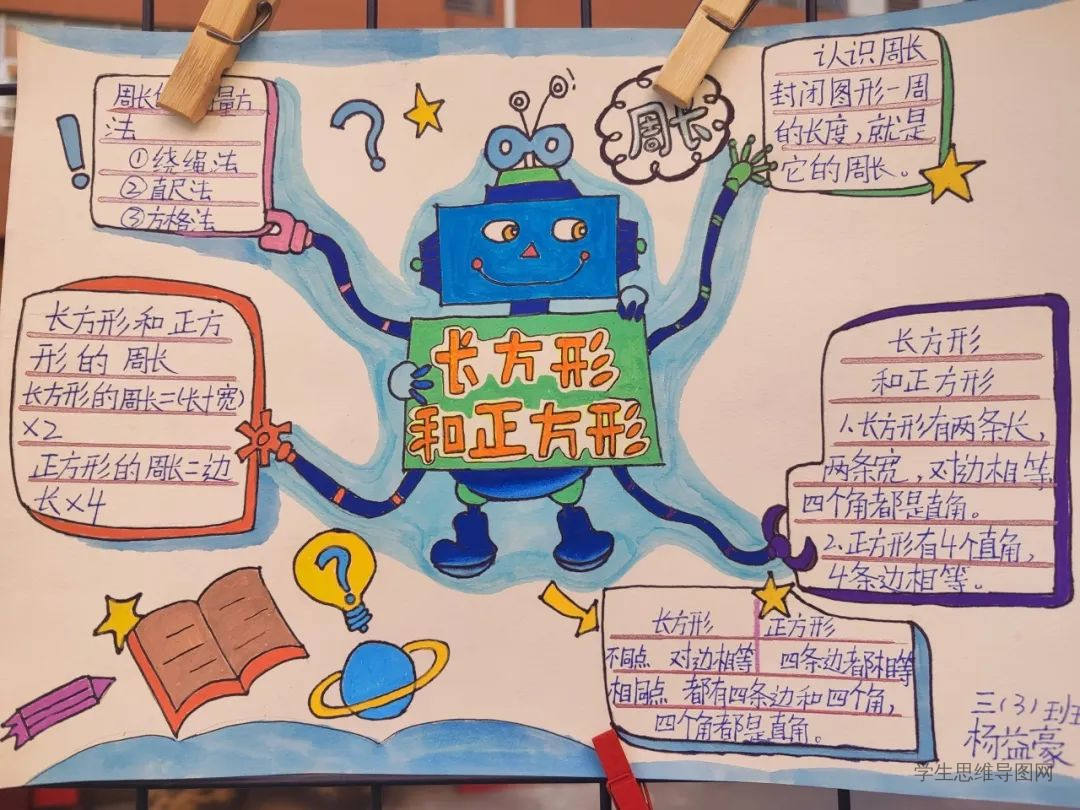 周长 量方
法
①绕绳法
②直尺法
③方格法
周长
认识周长
封闭图形一周
的长度,就是
它的周长。
长方形
和正方形
长方形和正方
形的 周长
长方形的周长=(长+宽)
×2
正方形的周长=边
长×4
长方形
和正方形
1.长方形有两条长,
两条宽,对边相等
四个角都是直角。
2.正方形有4个直角,
4条边相等。
长方形 正方形
不同点 对边相等 四条边都相等
相同点 都有四条边和四个角,
四个角都是直角。
三(3)班
杨益豪
学生思维导图网